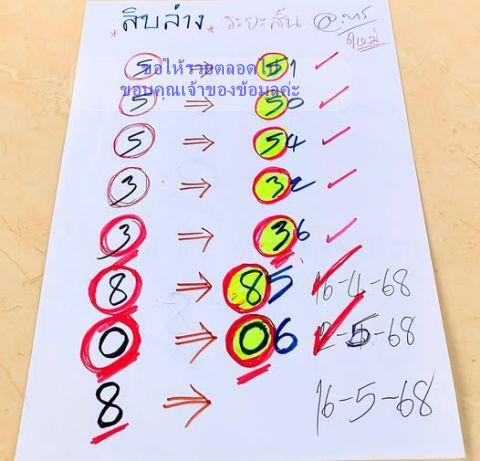 * สิบล่าง * ระยะสั้น @.การ์
ใหม่
ขอให้รวยตลอดไป
ขอบคุณเจ้าของข้อมูลค่ะ
5 → 51 ✓
5 → 50 ✓
5 → 54 ✓
3 → 32 ✓
3 → 36 ✓
8 → 85 ✓ 16-4-68
0 → 06 ✓ 2-5-68
8 → 16-5-68